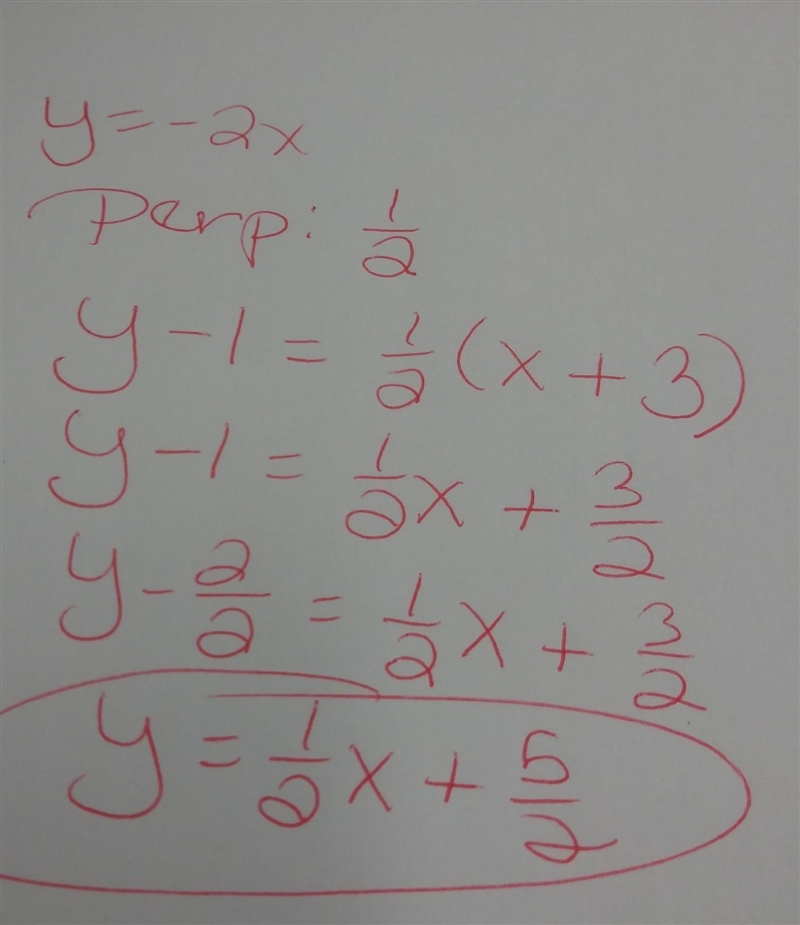 y = -2x
Perp: 1/2
y - 1 = 1/2 (x + 3)
y - 1 = 1/2 x + 3/2
y - 2/2 = 1/2 x + 3/2
y = 1/2 x + 5/2